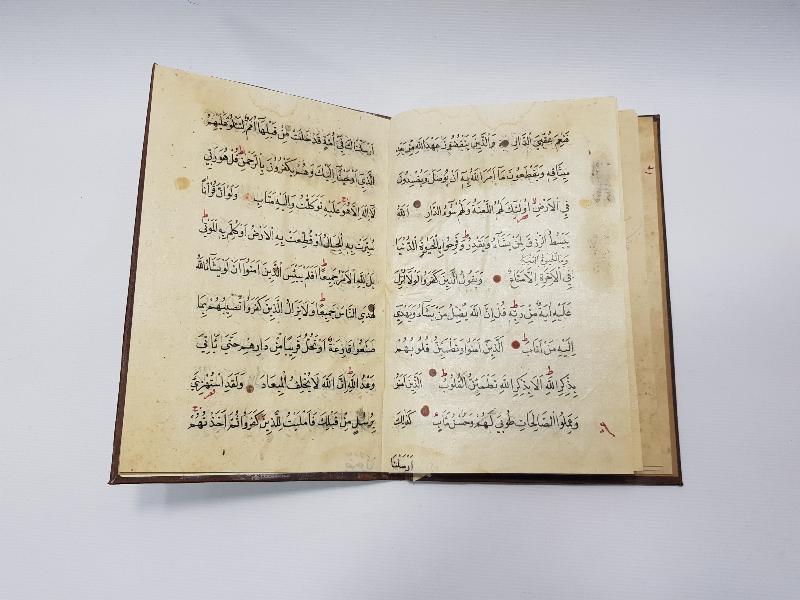 فَنِعْمَ عُقْبَى الدَّارِ وَالَّذِينَ يَنْقُضُونَ عَهْدَ اللّٰهِ مِنْ بَعْدِ
مِيثَاقِهِ وَيَقْطَعُونَ مَا اَمَرَ اللّٰهُ بِهِ اَنْ يُوصَلَ وَيُفْسِدُونَ
فِي الْاَرْضِ اُولٰئِكَ لَهُمُ اللَّعْنَةُ وَلَهُمْ سُوءُ الدَّارِ اَللّٰهُ
يَبْسُطُ الرِّزْقَ لِمَنْ يَشَاءُ وَيَقْدِرُ وَفَرِحُوا بِالْحَيٰوةِ الدُّنْيَا
وَمَا الْحَيٰوةُ الدُّنْيَا
فِي الْاٰخِرَةِ اِلَّا مَتَاعٌ وَيَقُولُ الَّذِينَ كَفَرُوا لَوْلَا اُنْزِلَ
عَلَيْهِ اٰيَةٌ مِنْ رَبِّهِ قُلْ اِنَّ اللّٰهَ يُضِلُّ مَنْ يَشَاءُ وَيَهْدِي
اِلَيْهِ مَنْ اَنَابَ اَلَّذِينَ اٰمَنُوا وَتَطْمَئِنُّ قُلُوبُهُمْ
بِذِكْرِ اللّٰهِ اَلَا بِذِكْرِ اللّٰهِ تَطْمَئِنُّ الْقُلُوبُ اَلَّذِينَ اٰمَنُوا
وَعَمِلُوا الصَّالِحَاتِ طُوبٰى لَهُمْ وَحُسْنُ مَاٰبٍ كَذٰلِكَ
اَرْسَلْنَا
اَرْسَلْنَاكَ فِي اُمَّةٍ قَدْ خَلَتْ مِنْ قَبْلِهَا اُمَمٌ لِتَتْلُوَ عَلَيْهِمُ
الَّذِي اَوْحَيْنَا اِلَيْكَ وَهُمْ يَكْفُرُونَ بِالرَّحْمٰنِ قُلْ هُوَ رَبِّي
لَا اِلٰهَ اِلَّا هُوَ عَلَيْهِ تَوَكَّلْتُ وَاِلَيْهِ مَتَابِ وَلَوْ اَنَّ قُرْاٰنًا
سُيِّرَتْ بِهِ الْجِبَالُ اَوْ قُطِّعَتْ بِهِ الْاَرْضُ اَوْ كُلِّمَ بِهِ الْمَوْتٰى
بَلْ لِلّٰهِ الْاَمْرُ جَمِيعًا اَفَلَمْ يَيْئَسِ الَّذِينَ اٰمَنُوا اَنْ لَوْ يَشَاءُ اللّٰهُ
لَهَدَى النَّاسَ جَمِيعًا وَلَا يَزَالُ الَّذِينَ كَفَرُوا تُصِيبُهُمْ بِمَا
صَنَعُوا قَارِعَةٌ اَوْ تَحُلُّ قَرِيبًا مِنْ دَارِهِمْ حَتّٰى يَاْتِيَ
وَعْدُ اللّٰهِ اِنَّ اللّٰهَ لَا يُخْلِفُ الْمِيعَادَ وَلَقَدِ اسْتُهْزِئَ
بِرُسُلٍ مِنْ قَبْلِكَ فَاَمْلَيْتُ لِلَّذِينَ كَفَرُوا ثُمَّ اَخَذْتُهُمْ